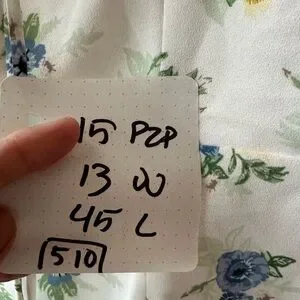 15 P2P
13 W
45 L
510